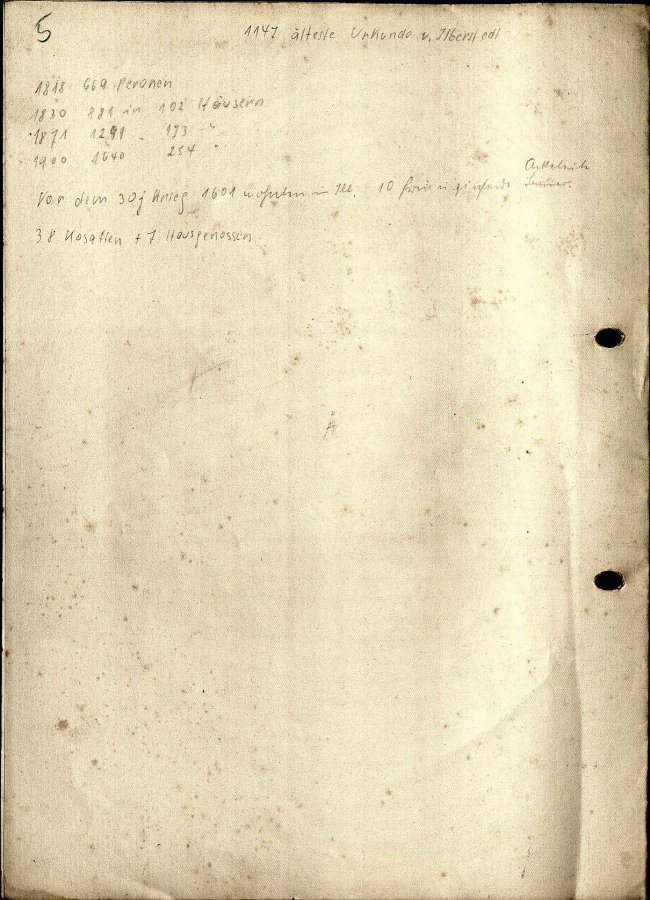 5
1147 älteste Urkunde v. Ilberstedt
1818 669 Peronen
1830 881 in 102 Häusern
1871 1291 " 173 "
1900 1640 254 "
Ackerleute
Vor dem 30j Krieg 1601 wohnten in Ilb. 10
38 Kosatten + 7 Hausgenossen